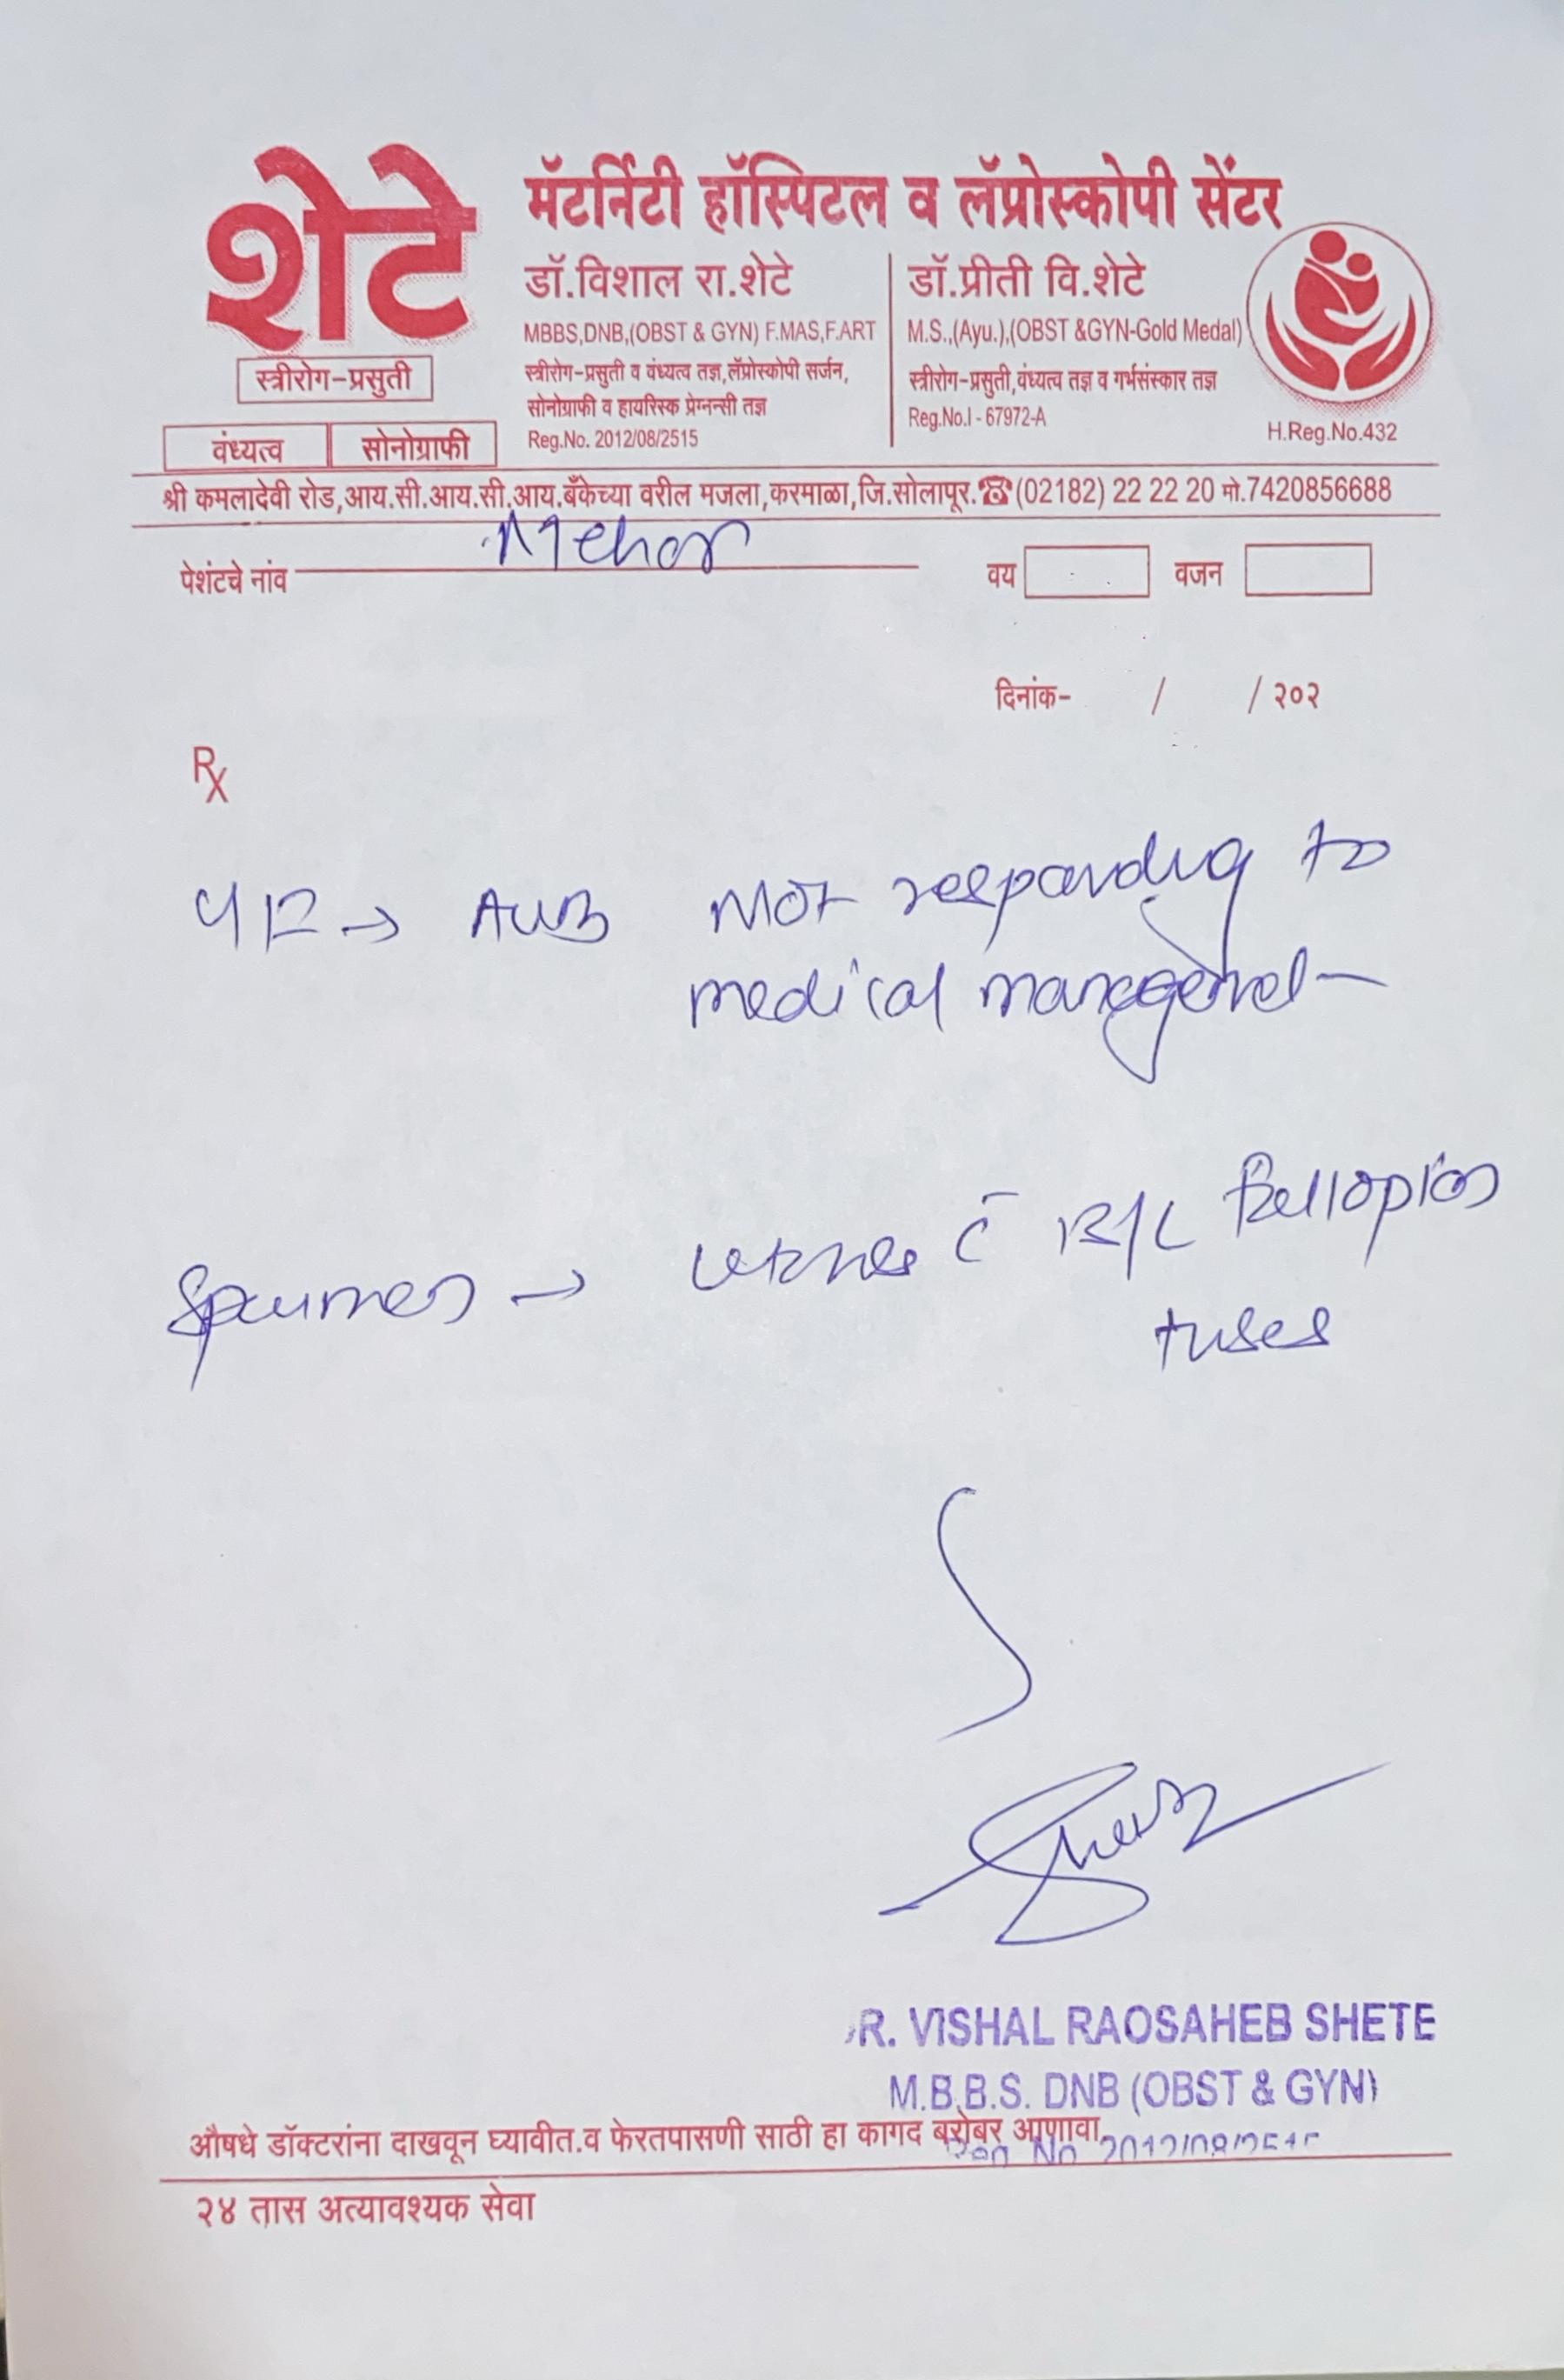 शेटे
मॅटर्निटी हॉस्पिटल व लॅप्रोस्कोपी सेंटर
स्त्रीरोग-प्रसुती
वंध्यत्व सोनोग्राफी
डॉ.विशाल रा.शेटे
MBBS,DNB,(OBST & GYN) F.MAS,F.ART
स्त्रीरोग-प्रसुती व वंध्यत्व तज्ञ,लॅप्रोस्कोपी सर्जन,
सोनोग्राफी व हायरिस्क प्रेग्नन्सी तज्ञ
Reg.No. 2012/08/2515
डॉ.प्रीती वि.शेटे
M.S.,(Ayu.),(OBST &GYN-Gold Medal)
स्त्रीरोग-प्रसुती,वंध्यत्व तज्ञ व गर्भसंस्कार तज्ञ
Reg.No.I - 67972-A
H.Reg.No.432
श्री कमलादेवी रोड,आय.सी.आय.सी.आय.बँकेच्या वरील मजला,करमाळा,जि.सोलापूर.☎(02182) 22 22 20 मो.7420856688
पेशंटचे नांव वय वजन
दिनांक- / / २०२
Rx
→ AUB Not responding to
medical management
Specimen → uterus c̄ B/L fallopian
tubes
R. VISHAL RAOSAHEB SHETE
M.B.B.S. DNB (OBST & GYN)
औषधे डॉक्टरांना दाखवून घ्यावीत.व फेरतपासणी साठी हा कागद बरोबर आणावा.
Reg No 2012/08/2515
२४ तास अत्यावश्यक सेवा